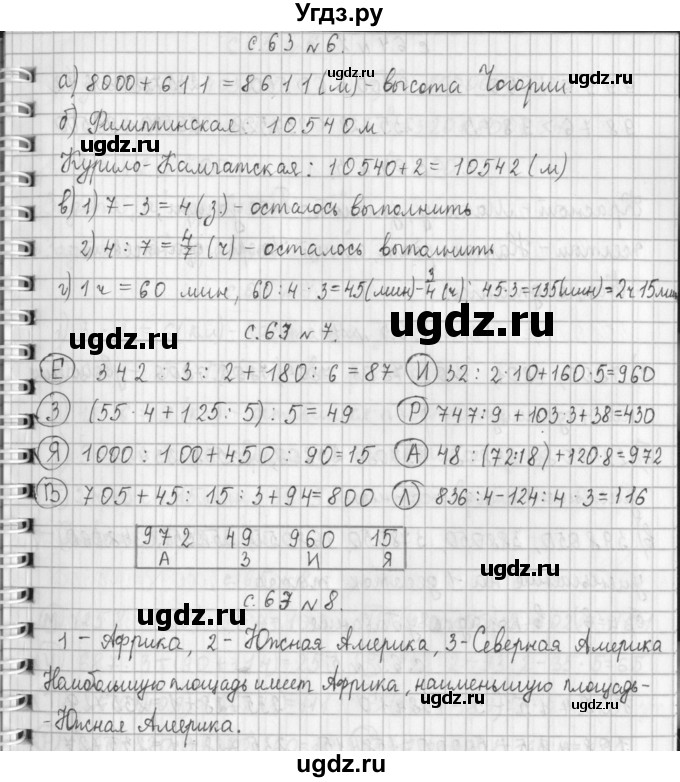 Угдз.ру
с.63 №6.
а) 8000 + 611 = 8611 (м) - высота Чогории
б) Филиппинская: 10540 м.
Курило-Камчатская: 10540+2 = 10542 (м)
в) 1) 7 - 3 = 4 (з.) - осталось выполнить
2) 4 : 7 = 4/7 (ч) - осталось выполнить
г) 1 ч = 60 мин, 60:4 · 3=45(мин)-3/4(ч) 45·3=135(мин)=2ч 15мин
с.63 №7.
Е 342 : 3 : 2 + 180 : 6 = 87 И 32 : 2·10+160·5=960
З (55·4 + 125:5) : 5 = 49 Р 747:9 +103·3+38=430
Я 1000 : 100+450 : 90=15 А 48 : (72:18) +120·8=972
В 705+45 : 15 : 3+94=800 Л 836:4-124:4·3=116
972 49 960 15
А З И Я
с.63 №8.
1 - Африка, 2 - Южная Америка, 3-Северная Америка
Наибольшую площадь имеет Африка, наименьшую площадь-
-Южная Америка.
ugdz.ru
ugdz.ru
ugdz.ru
ugdz.ru
ugdz.ru
ugdz.ru
ugdz.ru
ugdz.ru
ugdz.ru
ugdz.ru
ugdz.ru
ugdz.ru
ugdz.ru
ugdz.ru